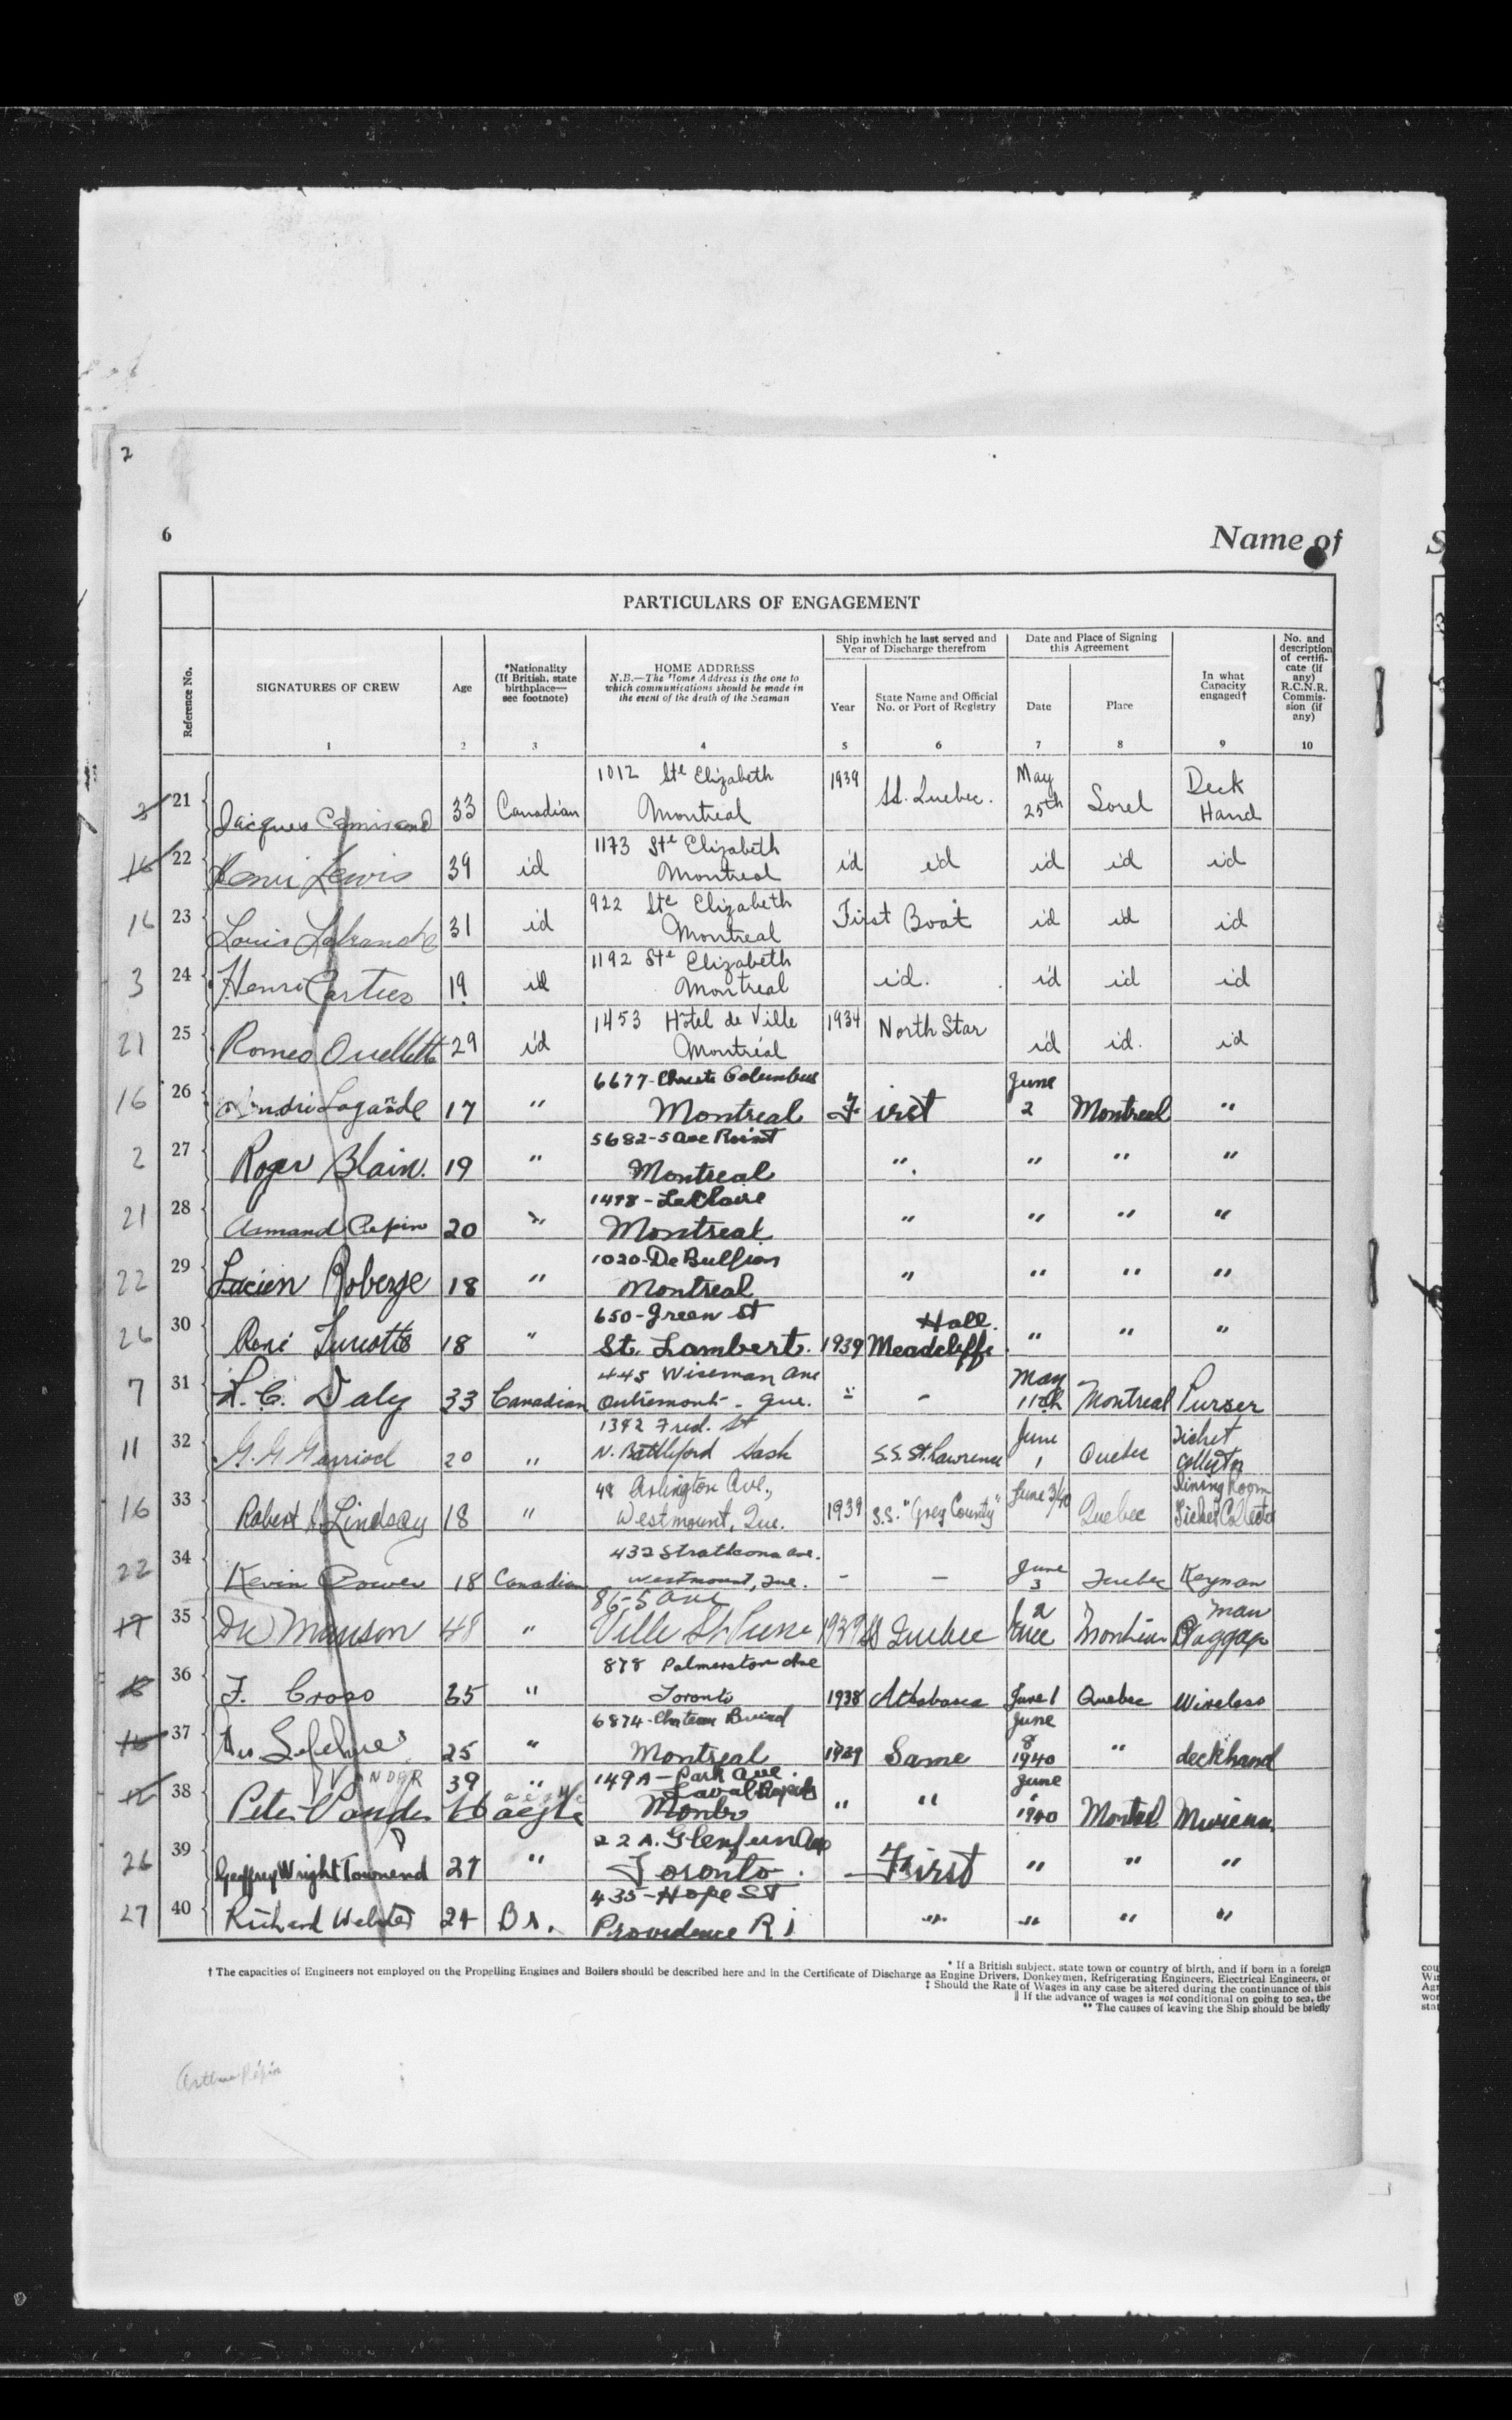 2
6 Name of
PARTICULARS OF ENGAGEMENT
Reference No.
SIGNATURES OF CREW
1
Age
2
*Nationality
(If British, state
birthplace—
see footnote)
3
HOME ADDRESS
N.B.—The Home Address is the one to
which communications should be made in
the event of the death of the Seaman
4
Ship in which he last served and
Year of Discharge therefrom
Year
5
State Name and Official
No. or Port of Registry
6
Date and Place of Signing
this Agreement
Date
7
Place
8
In what
Capacity
engaged†
9
No. and
description
of certifi-
cate (if
any)
R.C.N.R.
Commis-
sion (if
any)
10
1012 Ste Elizabeth 1939 May Deck
3 21 Jacques 33 Canadian Montreal SS. Quebec. 25th Sorel Hand
1173 Ste Elizabeth
16 22 Henri Lewis 39 id Montreal id id id id id
922 Ste Elizabeth
16 23 Louis Labranche 31 id Montreal First Boat id id id
1192 Ste Elizabeth
3 24 Henri Cartier 19 id Montreal id. id id id
1453 Hôtel de Ville 1934
21 25 Romeo Ouellette 29 id Montréal North Star id id. id
6677- Columbus June
16 26 Lagarde 17 " Montreal First 2 Montreal "
5682-5 Ave
2 27 Roger Blain. 19 " Montreal " " " "
1498-LeClaire
21 28 Armand Pepin 20 " Montreal " " " "
1020-De Bullion
22 29 Lucien Roberge 18 " Montreal " " " "
650-Green St Hall.
26 30 René Turcotte 18 " St. Lambert. 1939 Meadcliffe " " "
445 Wiseman Ave May
7 31 L. C. Daly 33 Canadian Outremont - Que. " - 11th Montreal Purser
1392 Fred. St June Ticket
11 32 G. G. Garrioch 20 " N. Battleford Sask S.S. St. Lawrence 1 Quebec Collector
48 Arlington Ave., Dining Room
16 33 Robert H. Lindsay 18 " Westmount, Que. 1939 S.S. "Grey County" June 3/40 Quebec Ticket Collector
432 Strathcona Ave. June
22 34 Kevin Power 18 Canadian Westmount, Que. - - 3 Quebec Keyman
86-5 Ave 2 man
17 35 Manson 48 " Ville St. Pierre 1939 SS Quebec June Baggage
878 Palmerston Ave
36 F. Cross 25 " Toronto 1938 Athabasca June 1 Quebec Wireless
6874- June
16 37 Lefebvre 25 " Montreal 1939 Same 8 1940 " deckhand
39 149A-Park Ave. June
38 Peter Vander Haeghe " Laval Rapids " " 1940 Montreal
22 A. Glen
26 39 Geoffrey Wright Townend 27 " Toronto. - First " " "
435-Hope St
27 40 Richard Webster 24 Br. Providence R i " " " "
* If a British subject, state town or country of birth, and if born in a foreign
† The capacities of Engineers not employed on the Propelling Engines and Boilers should be described here and in the Certificate of Discharge as Engine Drivers, Donkeymen, Refrigerating Engineers, Electrical Engineers, or
‡ Should the Rate of Wages in any case be altered during the continuance of this
‖ If the advance of wages is not conditional on going to sea, the
** The causes of leaving the Ship should be briefly